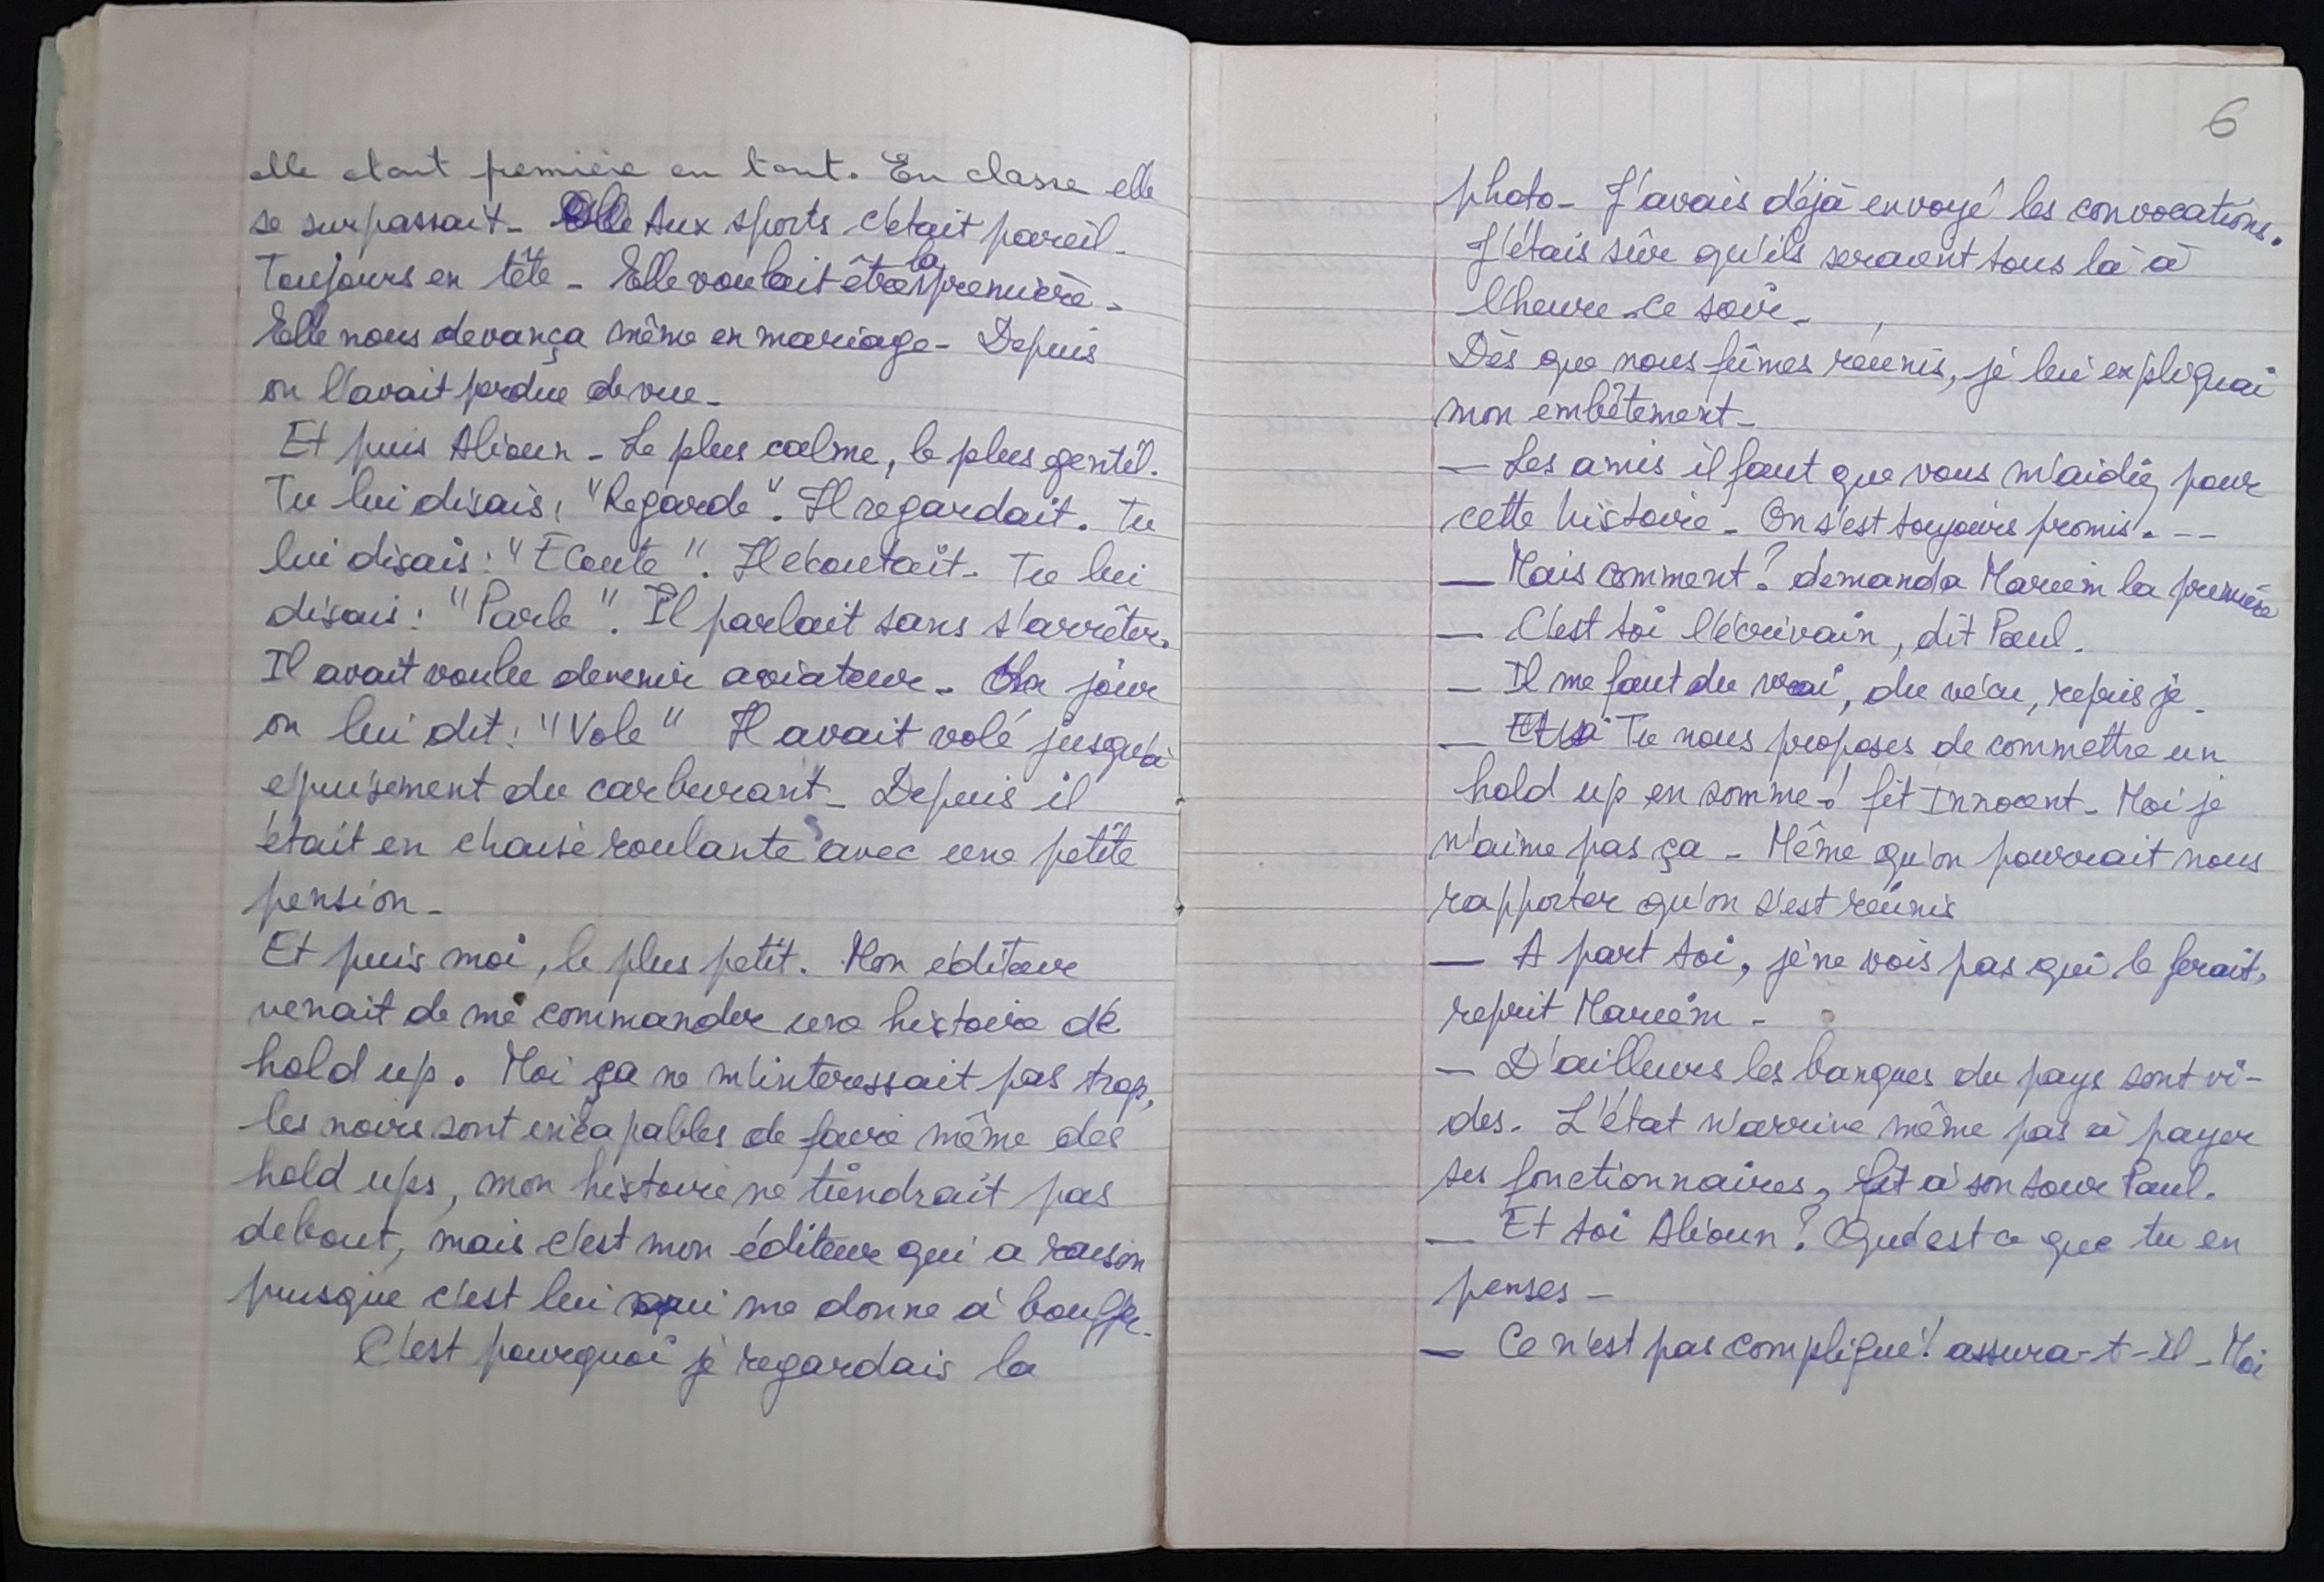 elle etait première en tout. En classe elle
se surpassait - Aux sports c'était pareil -
Toujours en tête - Elle voulait être la première -
Elle nous devança même en mariage - Depuis
on l'avait perdue de vue -
Et puis Alioun - Le plus calme, le plus gentil.
Tu lui disais : "Regarde". Il regardait. Tu
lui disais : "Ecoute". Il écoutait - Tu lui
disais : "Parle". Il parlait sans s'arrêter.
Il avait voulu devenir aviateur - Un jour
on lui dit : "Vole" Il avait volé jusqu'à
épuisement du carburant - Depuis il
était en chaise roulante avec une petite
pension -
Et puis moi, le plus petit. Mon éditeur
venait de me commander une histoire de
hold up. Moi ça ne m'interessait pas trop,
les noirs sont incapables de faire même des
hold ups, mon histoire ne tiendrait pas
debout, mais c'est mon éditeur qui a raison
pusque c'est lui qui me donne à bouffer -
C'est pourquoi je regardais la
6
photo - J'avais déjà envoyé les convocations.
J'étais sûr qu'ils seraient tous là à
l'heure ce soir -
Dès que nous fûmes réunis, je lui expliquai
mon embêtement -
— Les amis il faut que vous m'aidiez pour
cette histoire - On s'est toujours promis . --
— Mais comment ? demanda Marièm la première
— C'est toi l'écrivain, dit Paul.
— Il me faut du vrai, du vécu, repris je -
— Tu nous proposes de commettre un
hold up en somme ! fit Innocent - Moi je
n'aime pas ça - Même qu'on pourrait nous
rapporter qu'on s'est réunis
— A part toi, je ne vois pas qui le ferait,
reprit Marièm -
— D'ailleurs les banques du pays sont vi-
des. L'état n'arrive même pas à payer
ses fonctionnaires, fit à son tour Paul.
— Et toi Alioun ? Qu'est ce que tu en
penses -
— Ce n'est pas compliqué ! assura-t-il - Moi